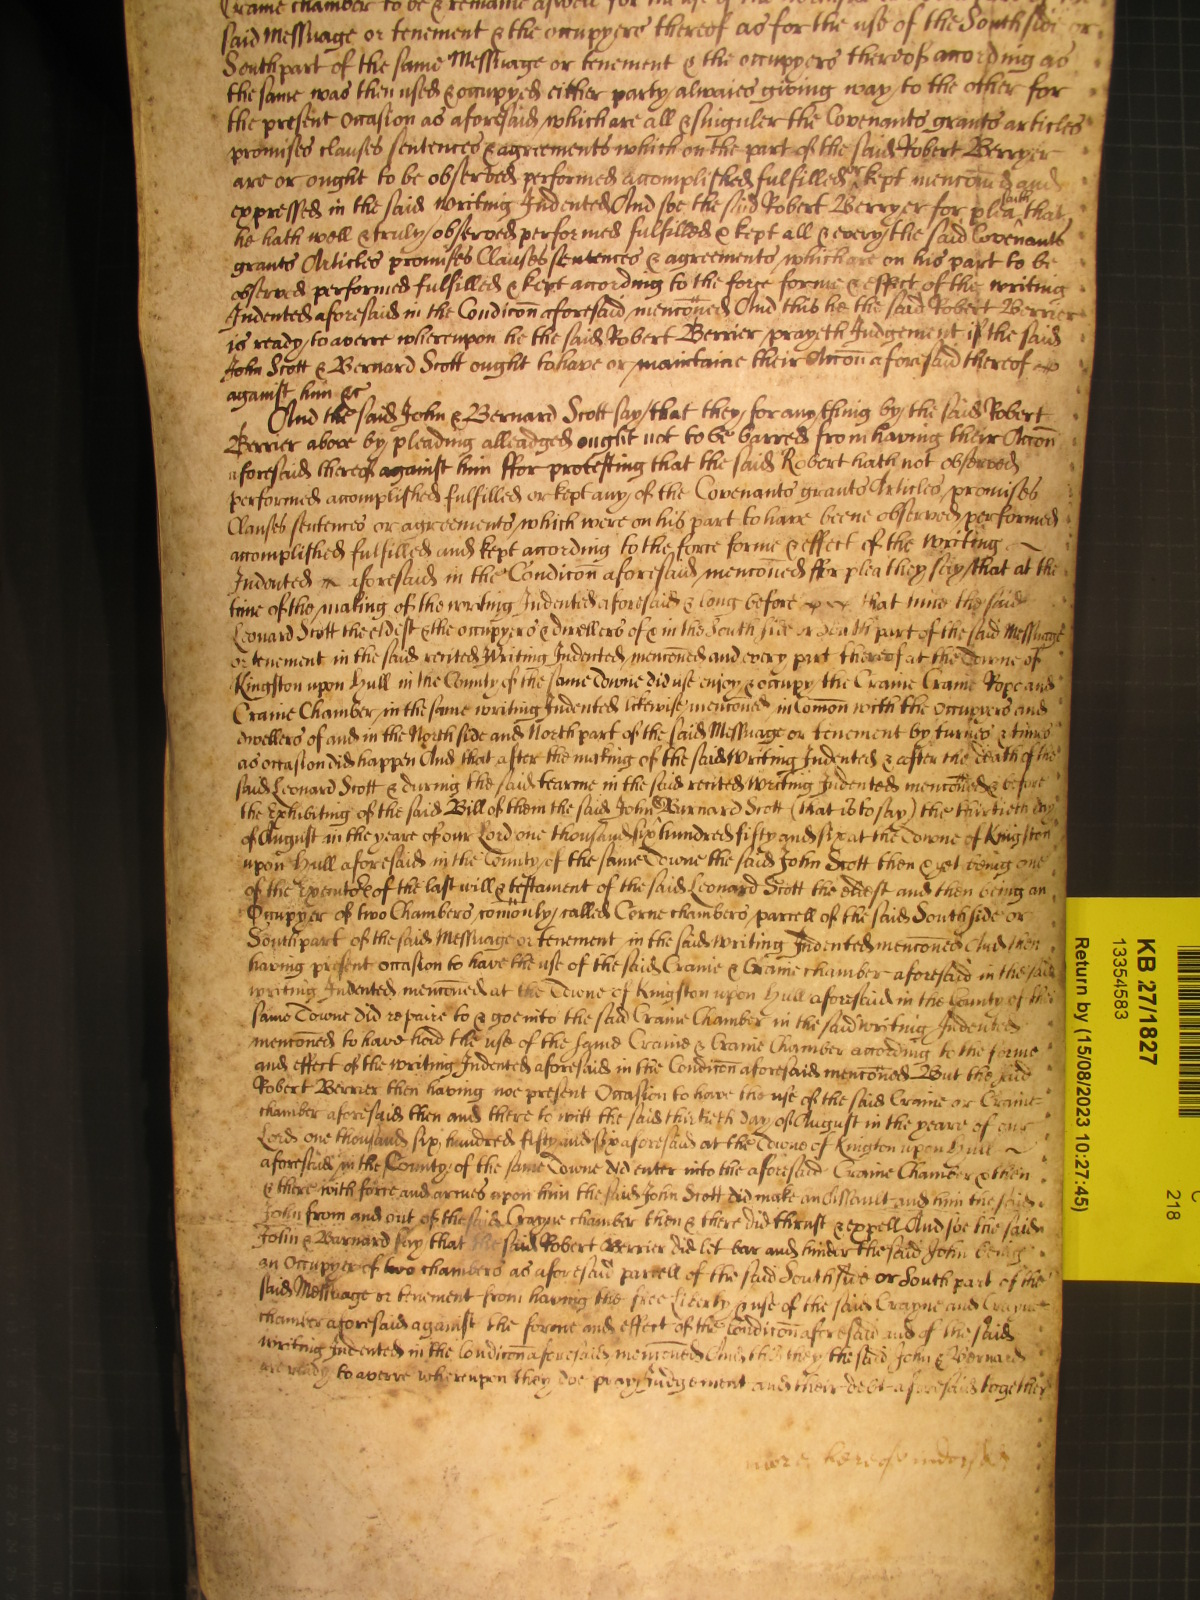 Craine chamber to be & remaine aswell for the use of the
said Messuage or tenement & the occupyers thereof as for the use of the Southside or
Southpart of the same Messuage or tenement & the occupyers thereof according as
the same was then used & occupyed either party alwaies giving way to the other for
the present occasion as aforesaid which are all & singuler the Covenants grants articles
promises clauses sentences & agreements which on the part of the said Robert Berryer
are or ought to be observed performed accomplished fulfilled or kept mencōned and
expressed in the said Writing Indented And soe the said Robert Berryer for plea saith that
he hath well & truly observed performed fulfilled & kept all & every the said Covenants
grants Articles promises Clauses sentences & agreements which are on his part to be
observed performed fulfilled & kept according to the force forme & effect of the writing
Indented aforesaid in the Condicōn aforesaid mencōned And this he the said Robert Berrier
is ready to averre whereupon he the said Robert Berrier prayeth Judgement if the said
John Scott & Bernard Scott ought to have or maintaine their Accōn aforesaid thereof
against him &c
And the said John & Bernard Scott say that they for any thing by the said Robert
Berrier above by pleading alleadged ought not to be barred from having their Accōn
aforesaid thereof against him ffor protesting that the said Robert hath not observed
performed accomplished fulfilled or kept any of the Covenants grants Articles promises
Clauses sentences or agreements which were on his part to have beene observed performed
accomplished fulfilled and kept according to the force forme & effect of the writing
Indented aforesaid in the Condicōn aforesaid mencōned ffor plea they say that at the
time of the making of the writing Indented aforesaid & long before that time the said
Leonard Scott the eldest & the occupyers & dwellers of & in the South side or South part of the said Messuage
or tenement in the said recited Writing Indented mencōned and every part thereof at the Towne of
Kingston upon Hull in the County of the same Towne did use enjoy & occupy the Craine Craine Rope and
Craine Chamber in the same writing Indented likewise mencōned in Comon with the occupyers and
dwellers of and in the North side and North part of the said Messuage or tenement by turnes & times
as occasion did happen And that after the making of the said Writing Indented & after the death of the
said Leonard Scott & during the said tearme in the said recited Writing Indented mencōned & before
the Exhibiting of the said Bill of them the said John & Barnard Scott (that is to say) the thirtieth day
of August in the yeare of our Lord one thousand six hundred fifty and six at the Towne of Kingston
upon Hull aforesaid in the County of the same Towne the said John Scott then & yet being one
of the Executors of the last will & testament of the said Leonard Scott the eldest and then being an
Occupyer of two Chambers comonly called Corne chambers parcell of the said Southside or
Southpart of the said Messuage or tenement in the said Writing Indented mencōned And then
having present occasion to have the use of the said Craine & Craine chamber aforesaid in the said
writing Indented mencōned at the Towne of Kingston upon Hull aforesaid in the County of the
same Towne did repaire to & goe into the said Craine Chamber in the said writing Indented
mencōned to have had the use of the same Craine & Craine Chamber according to the forme
and effect of the writing Indented aforesaid in the Condicōn aforesaid mencōned But the said
Robert Berrier then having noe present Occasion to have the use of the said Craine or Craine
chamber aforesaid then and there to witt the said thirtieth day of August in the yeare of our
Lord one thousand six hundred fifty and six aforesaid at the Towne of Kingston upon Hull
aforesaid in the County of the same Towne did enter into the aforesaid Craine Chamber & then
& there with force and armes upon him the said John Scott did make an Assault and him the said
John from and out of the said Crayne chamber then & there did thrust & expell And soe the said
John & Barnard say that the said Robert Berrier did let bar and hinder the said John being
an Occupyer of two chambers as aforesaid parcell of the said South side or South part of the
said Messuage or tenement from having the free Liberty & use of the said Crayne and Crayne
chamber aforesaid against the forme and effect of the Condicōn aforesaid and of the said
writing Indented in the Condicōn aforesaid mencōned And this they the said John & Bernard
are ready to averre whereupon they doe pray Judgement and their debt aforesaid together
more hereof indorsed
KB 27/1827
13354583
Return by (15/08/2023 10:27:45)
C
218